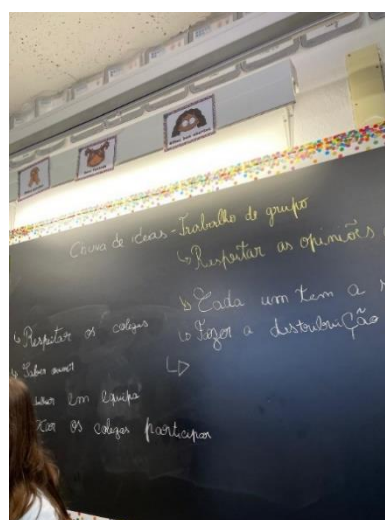 Chuva de ideas - Trabalho de grupo
↳ Respeitar as opiniões
↳ Cada um tem a s
↳ Fazer a distribuição
↳ Respeitar os colegas
↳ Saber ouvir
em equipa
os colegas participar